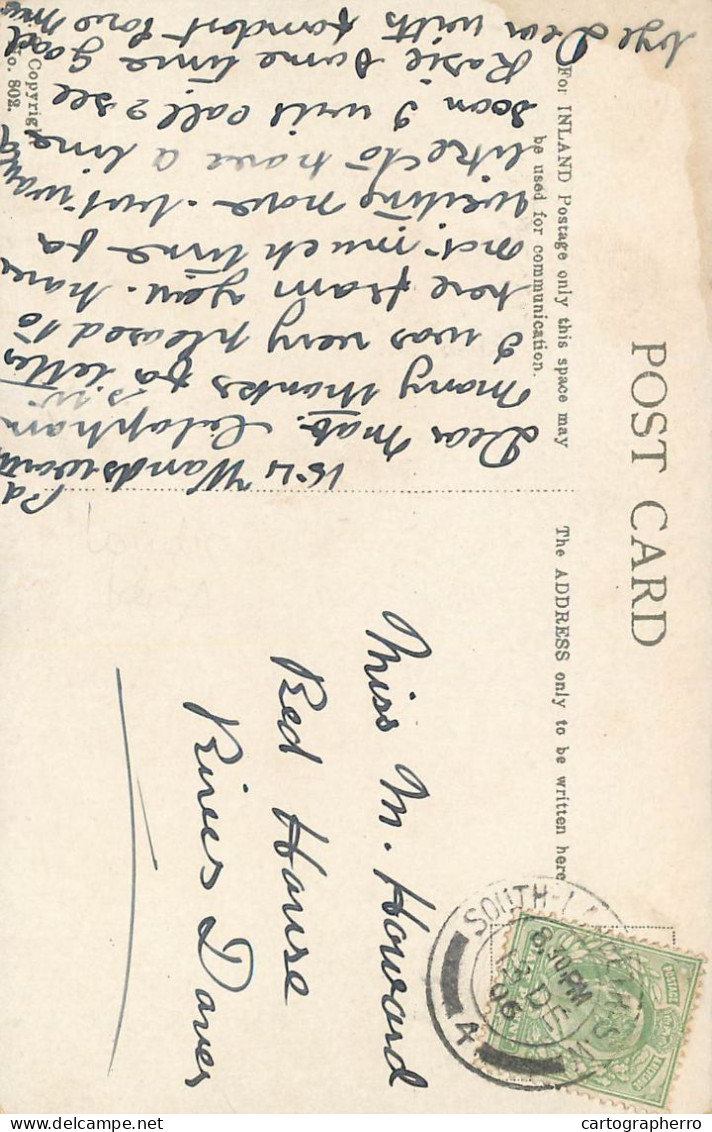 POST CARD
For INLAND Postage only this space may
be used for communication.
The ADDRESS only to be written here
Copyright
No. 802.
154 Wandsworth
Rd
Clapham
S.W.
Dear Mab.
Many thanks for letter
I was very pleased to
here from you. have
not much time for
writing now. but would
like to have a line
soon I will call & see
Rosie some time good
bye Dear with fondest love
Miss M. Howard
Red House
Rivers Daves
SOUTH LAMBETH
8.30 PM
DE
06
4
POSTAGE
REVENUE